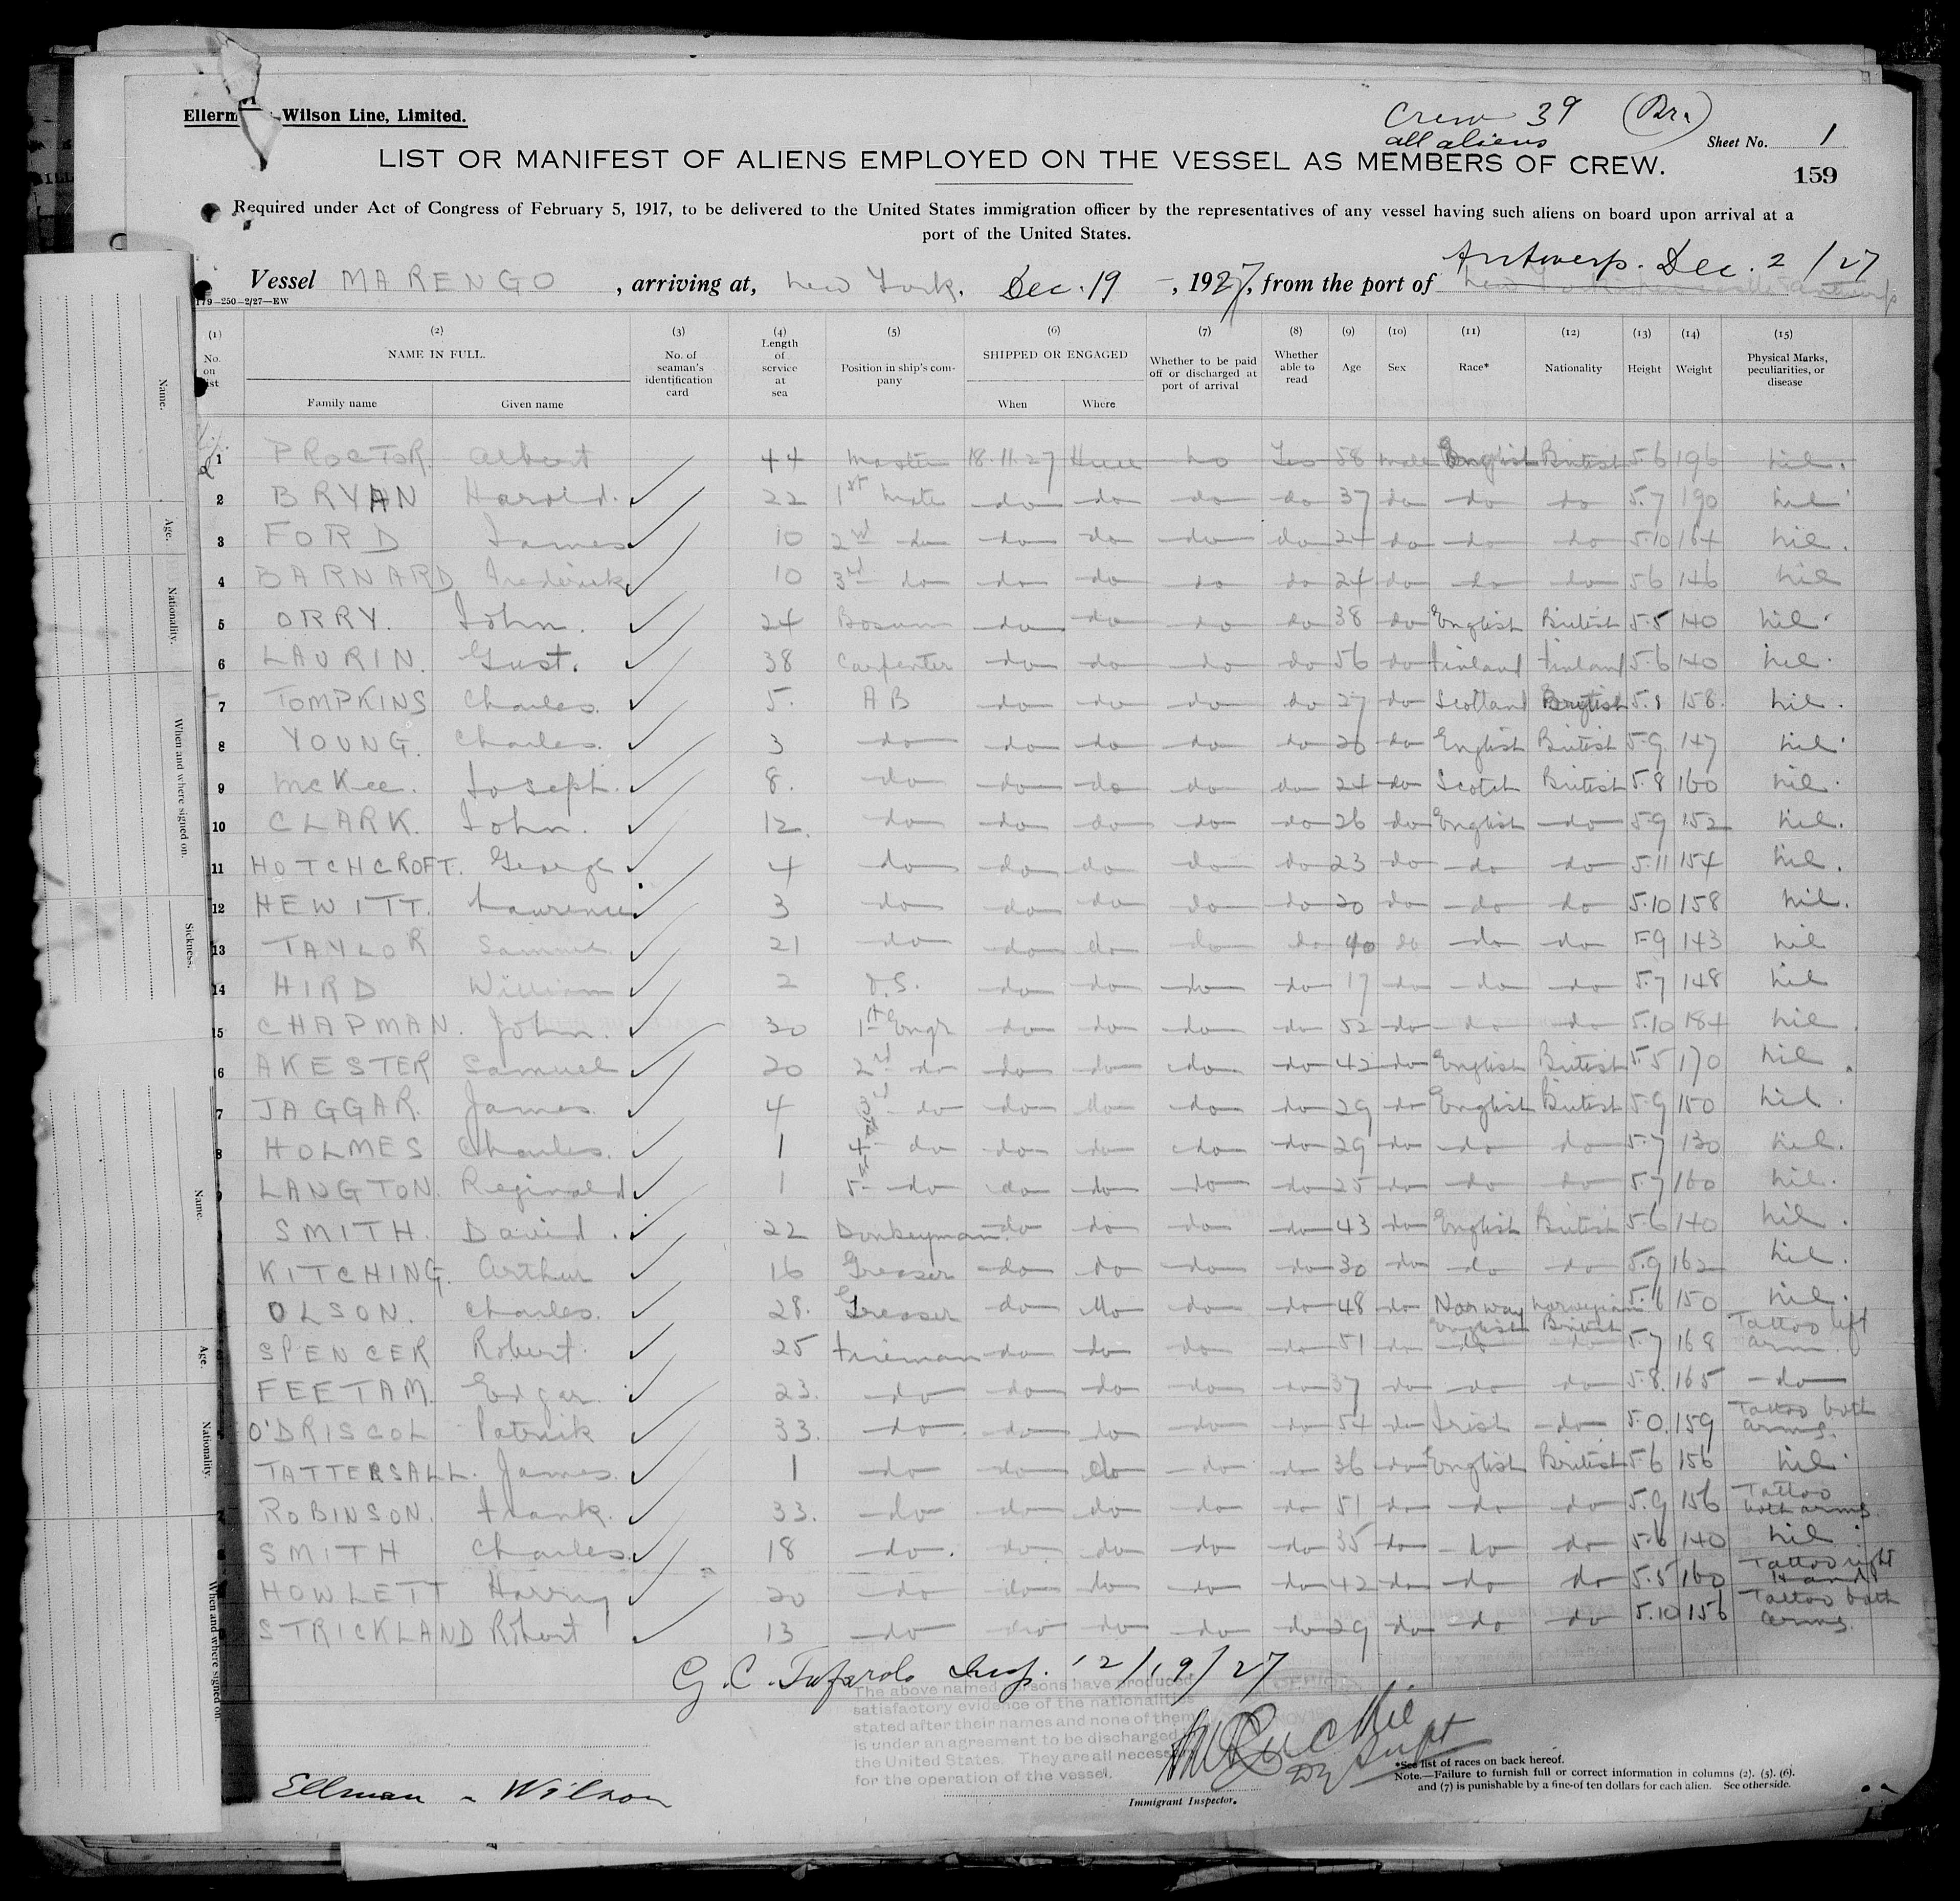 Ellerm Wilson Line, Limited.
Crew 39 (Br.)
all aliens
Sheet No. 1
LIST OR MANIFEST OF ALIENS EMPLOYED ON THE VESSEL AS MEMBERS OF CREW.
159
Required under Act of Congress of February 5, 1917, to be delivered to the United States immigration officer by the representatives of any vessel having such aliens on board upon arrival at a
port of the United States.
Antwerp. Dec. 2/27
Vessel MARENGO, arriving at, New York. Dec. 19, 1927, from the port of
179-250-2/27-EW
(1) (2) (3) (4) (5) (6) (7) (8) (9) (10) (11) (12) (13) (14) (15)
No. on list NAME IN FULL. No. of seaman's identification card Length of service at sea Position in ship's company SHIPPED OR ENGAGED Whether to be paid off or discharged at port of arrival Whether able to read Age Sex Race* Nationality Height Weight Physical Marks, peculiarities, or disease
Family name Given name When Where
1 PROCTOR Albert 44 Master 18.11.27 Hull no Yes 58 male English British 5.6 196 nil.
2 BRYAN Harold. 22 1st mate do do do do 37 do do do 5.7 190 nil
3 FORD James 10 2nd do do do do do 24 do do do 5.10 164 nil.
4 BARNARD Frederick 10 3rd do do do do do 24 do do do 5.6 146 nil
5 ORRY. John. 24 Bosun do do do do 38 do English British 5.5 140 nil.
6 LAURIN. Gust. 38 Carpenter do do do do 56 do Finland Finland 5.6 140 nil.
7 TOMPKINS Charles. 5. AB do do do do 27 do Scotland British 5.8 158. nil.
8 YOUNG. Charles. 3 do do do do do do English British 5.9. 147 nil
9 McKee. Joseph. 8. do do do do do 24 do Scotch British 5.8 160 nil.
10 CLARK. John. 12. do do do do do 26 do English do 5.9 152 nil.
11 HOTCHCROFT. George 4 do do do do do 23 do do do 5.11 154 nil.
12 HEWITT. Laurence 3 do do do do do 20 do do do 5.10 158 nil.
13 TAYLOR Samuel 21 do do do do do 40 do do do 5.9 143 nil
14 HIRD William 2 O.S. do do do do 17 do do do 5.7 148 nil
15 CHAPMAN. John. 30 1st Engr do do do do 52 do do do 5.10 184 nil.
16 AKESTER Samuel 20 2nd do do do do do 42 do English British 5.5 170 nil.
7 JAGGAR. James 4 3rd do do do do do 29 do English British 5.9 150 nil.
8 HOLMES Charles. 1 4 do do do do do 29 do do do 5.7 130 nil.
LANGTON. Reginald 1 5 do do do do do 25 do do do 5.7 160 nil.
SMITH. David. 22 Donkeyman do do do do 43 do English British 5.6 140 nil.
KITCHING. Arthur 16 Greaser do do do do 30 do do do 5.9 162 nil.
OLSON. Charles. 28. Greaser do do do do 48 do Norway Norwegian 5.6 150 nil.
SPENCER Robert. 25 Fireman do do do do 51 do English British 5.7 168 Tattoo left arm.
FEETAM. Edgar. 23. do do do do do 37 do do do 5.8. 165 do
O'DRISCOL Patrick 33. do do do do do 54 do Irish do 5.0. 159 Tattoo both arms.
TATTERSALL. James. 1 do do do do do 36 do English British 5.6 156 nil
ROBINSON. Frank. 33. do do do do do 51 do do do 5.9 156 Tattoo both arms.
SMITH Charles. 18 do. do do do do 35 do do do 5.6 140 nil.
HOWLETT Harry 20 do do do do do 42 do do do 5.5 160 Tattoo right Hand
STRICKLAND Robert 13 do do do do do 29 do do do 5.10 156 Tattoo both arms.
Insp. 12/19/27
The above named persons have produced
satisfactory evidence of the nationalities
stated after their names and none of them
is under an agreement to be discharged in
the United States. They are all necessary
for the operation of the vessel.
Immigrant Inspector.
*See list of races on back hereof.
Note.—Failure to furnish full or correct information in columns (2), (5), (6).
and (7) is punishable by a fine of ten dollars for each alien. See other side.
Ellman - Wilson
Name.
Age.
Nationality.
When and where signed on.
Sickness.
Name.
Age.
Nationality.
When and where signed on.